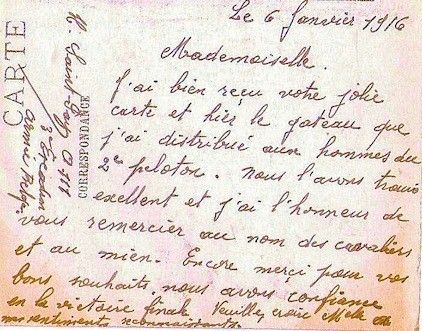 Le 6 Janvier 1916
Mademoiselle.
J'ai bien reçu votre jolie
carte et hier le gateau que
j'ai distribué aux hommes du
2e peloton. Nous l'avons trouvé
excellent et j'ai l'honneur de
vous remercier au nom des cavaliers
et au mien. Encore merci pour vos
bons souhaits nous avons confiance
en la victoire finale. Veuillez croire Melle en
mes sentiments reconnaissants.
CARTE
CORRESPONDANCE
3 Escadron
Armée Belge